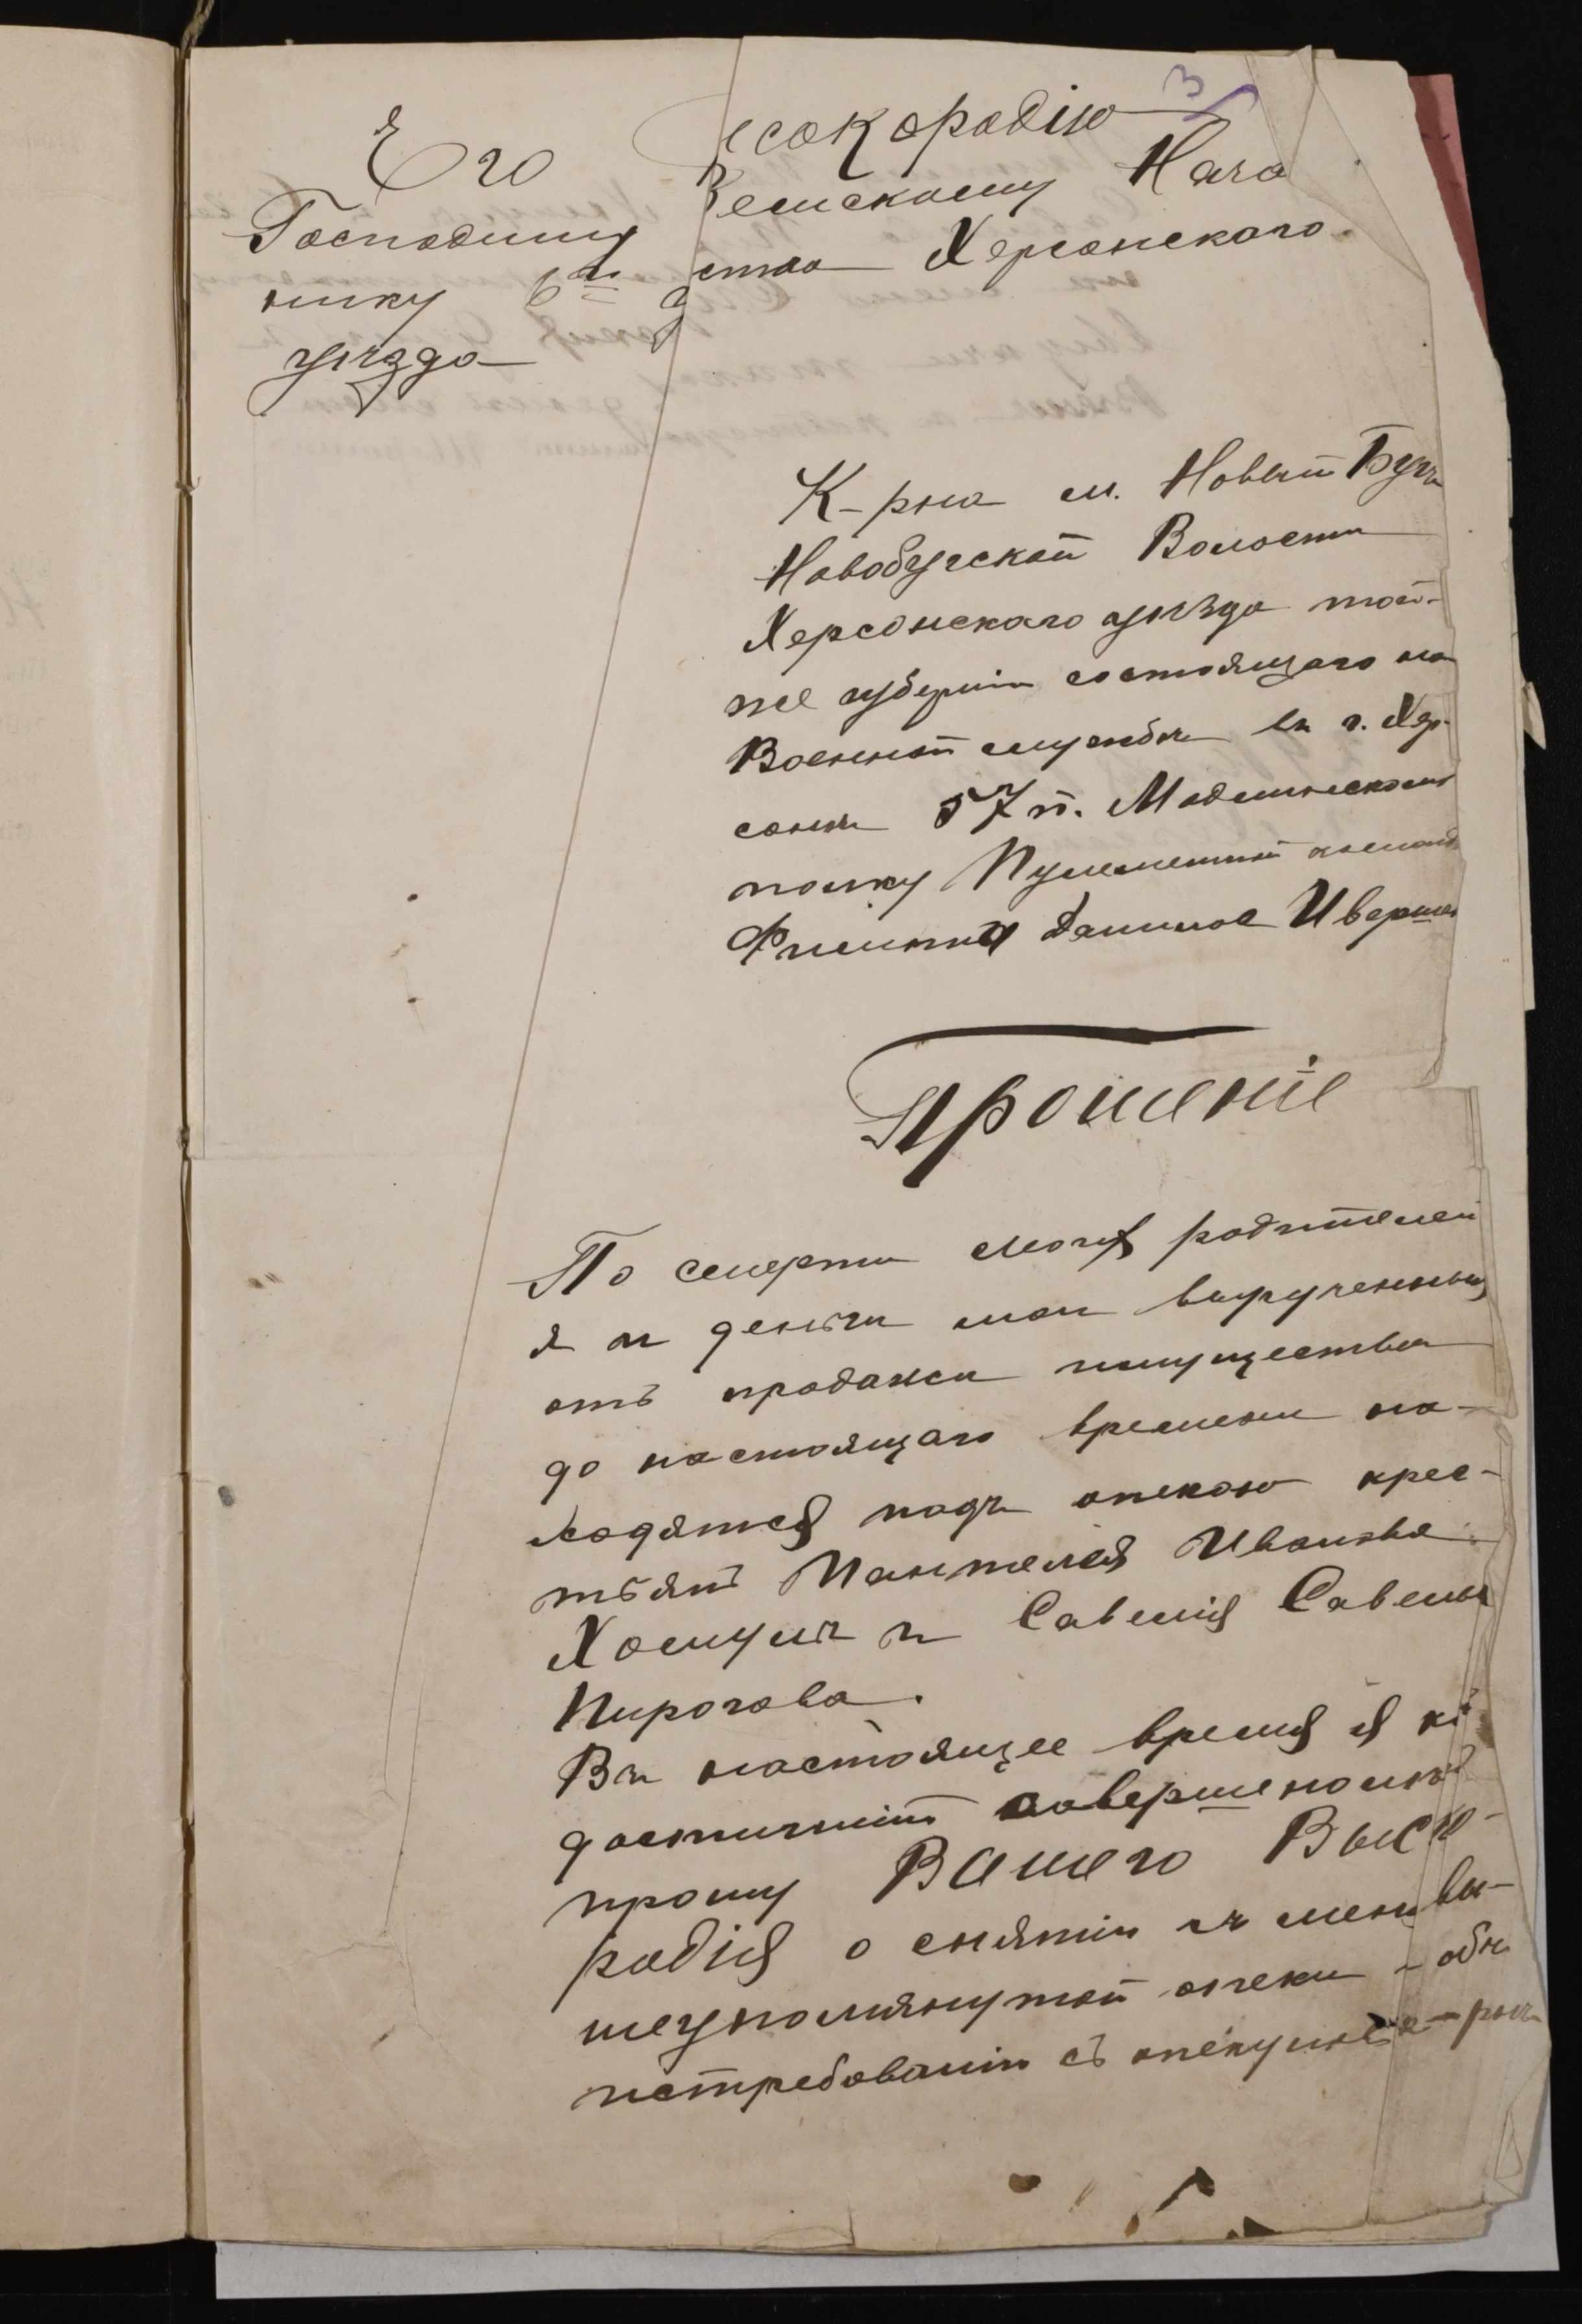 3
Его сокородію
Господину Земскому Нача
нику 6го уства Херсонскаго
уѣзда
К-рна м. Новый Бугъ
Новобугской Волости
Херсонскаго уѣзда той-
же губерніи состоящаго на
Военной службѣ въ г. Хер-
сонѣ 57 п. Модлинскомъ
полку Пулеметной команд
Филиппа Данилов Иверше
Прошеніе
По смерти моихъ родителей
я и деньги мои вырученныя
отъ продажи имущества
до настоящаго времени на-
ходятся подъ опекою крес-
тьянъ Пантелея Иванова
Хомуля и Савелія Савельева
Пирогова.
Въ настоящее время я къ
достигшій совершеннолѣт
прошу Вашего Высо-
родія о снятіи съ меня вы-
шеупомянутой опеки и объ
истребованіи съ опекуновъ к-рнъ